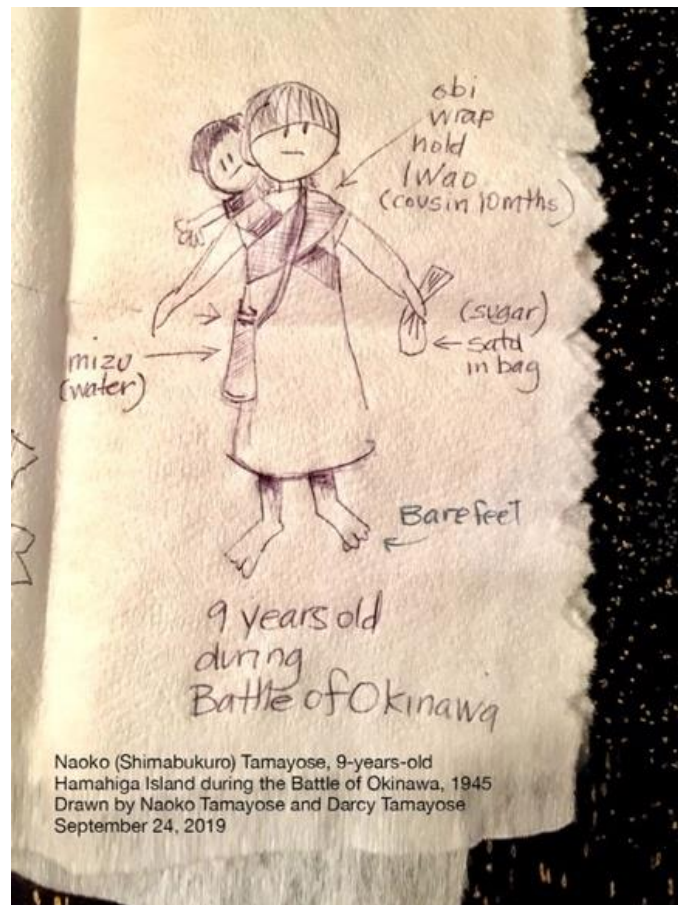 obi
wrap
hold
Iwao
(cousin 10mths)
(sugar)
satd
in bag
mizu
(water)
Barefeet
9 years old
during
Battle of Okinawa
Naoko (Shimabukuro) Tamayose, 9-years-old
Hamahiga Island during the Battle of Okinawa, 1945
Drawn by Naoko Tamayose and Darcy Tamayose
September 24, 2019